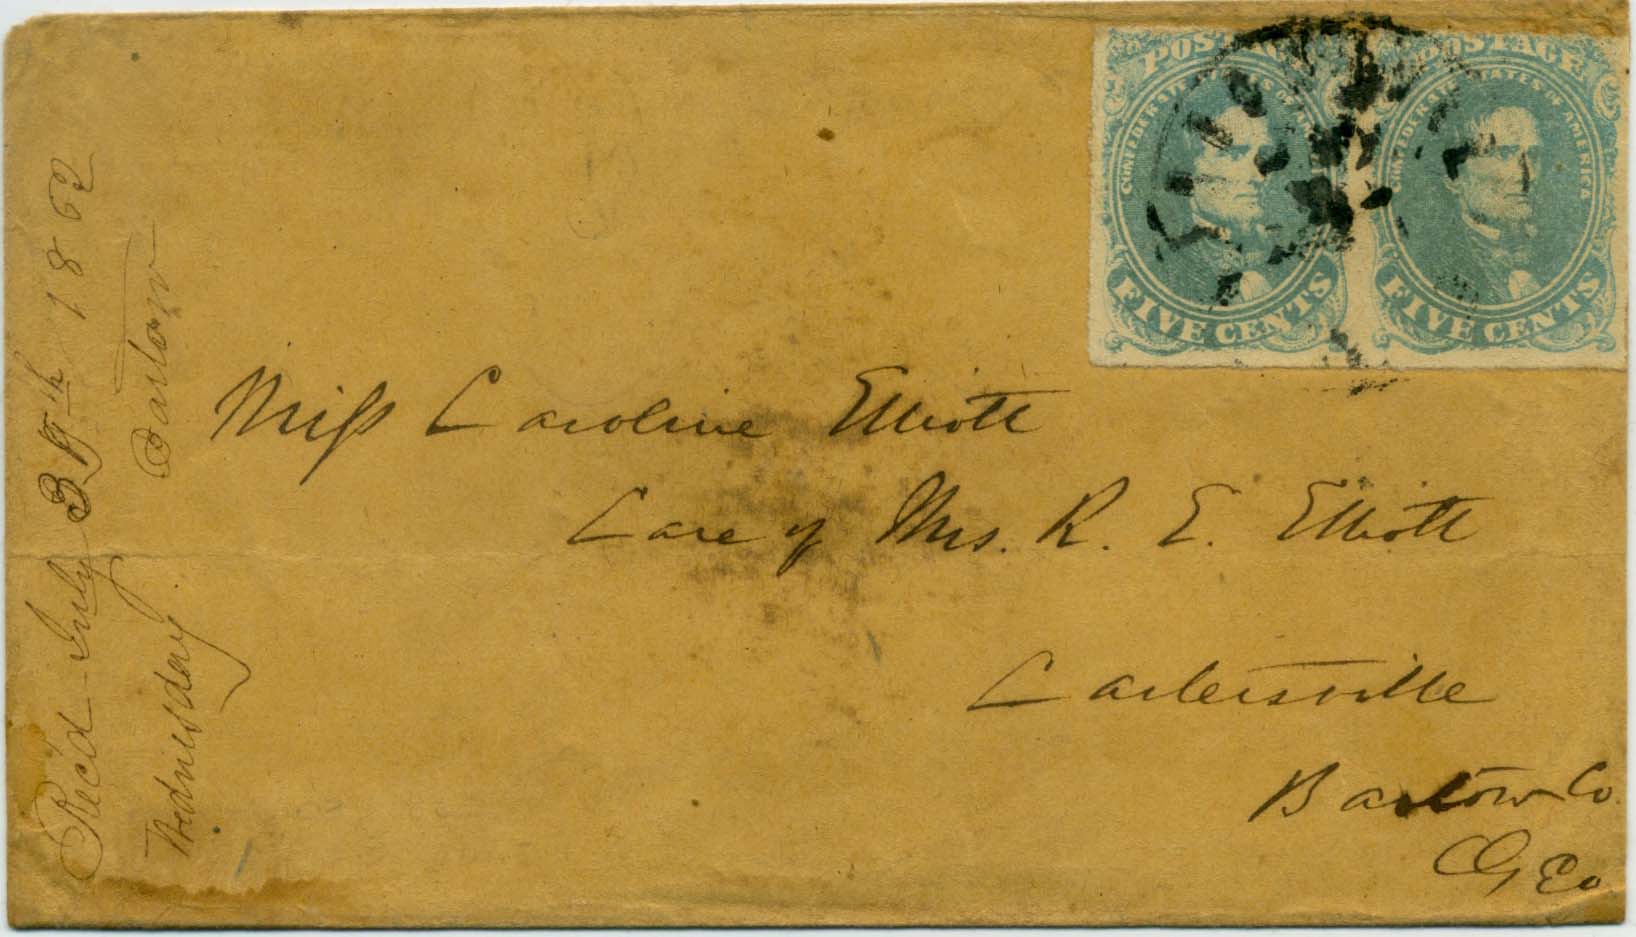 POSTAGE
CONFEDERATE STATES OF AMERICA
FIVE CENTS
POSTAGE
CONFEDERATE STATES OF AMERICA
FIVE CENTS
Miss Caroline Elliott
Care of Mrs. R. E. Elliott
Cartersville
Bartow Co.
Geo
Rec'd July 1862
Wednesday Bartow